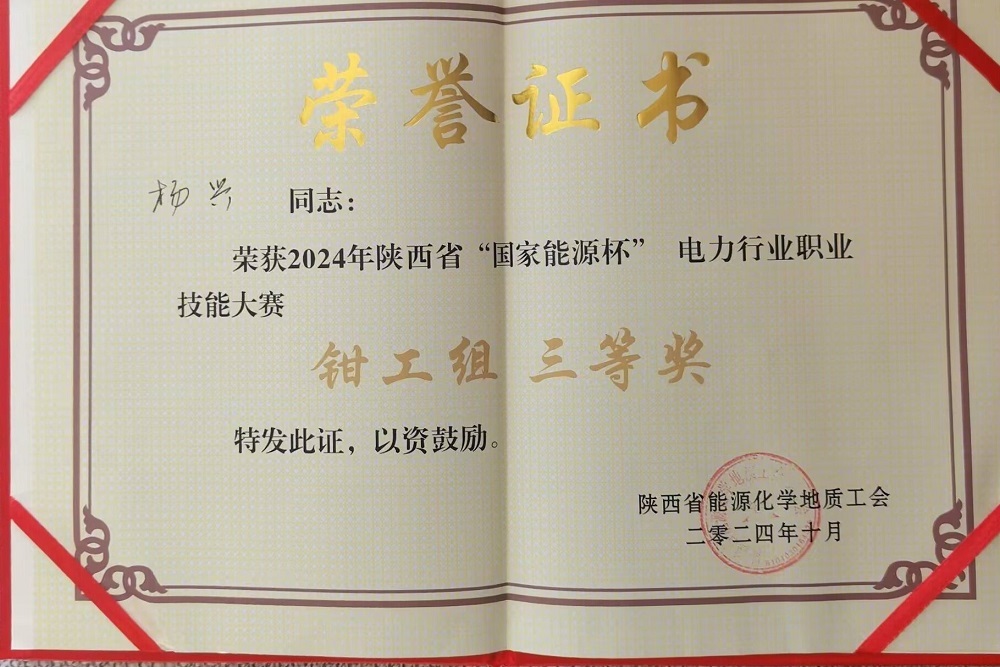 荣誉证书
杨兴 同志：
荣获2024年陕西省“国家能源杯” 电力行业职业
技能大赛
钳工组 三等奖
特发此证，以资鼓励。
陕西省能源化学地质工会
二零二四年十月